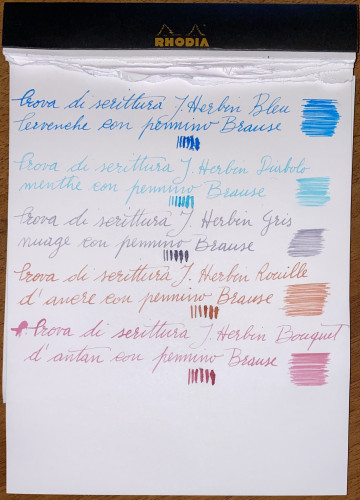 RHODIA
Prova di scrittura J. Herbin Bleu
Pervenche con pennino Brause
Prova di scrittura J. Herbin Diabolo
menthe con pennino Brause
Prova di scrittura J. Herbin Gris
nuage con pennino Brause
Prova di scrittura J. Herbin Rouille
d'ancre con pennino Brause
Prova di scrittura J. Herbin Bouquet
d'antan con pennino Brause